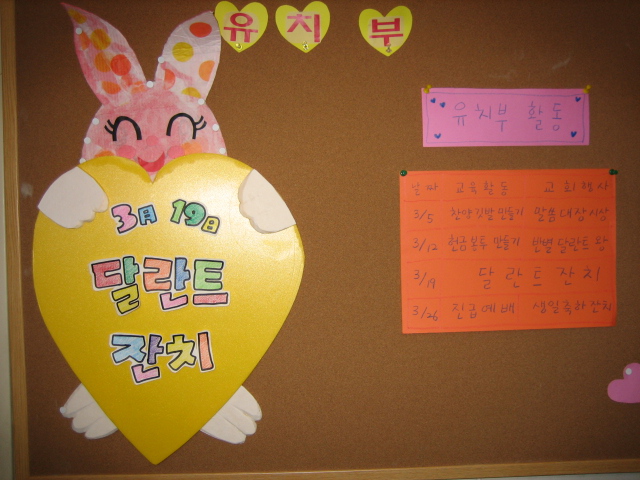 유치부
3月 19日
달란트
잔치
유치부 활동
날짜 교육활동 교회행사
3/5 찬양깃발 만들기 말씀대장시상
3/12 헌금봉투 만들기 반별 달란트왕
3/19 달란트 잔치
3/26 진급예배 생일축하잔치